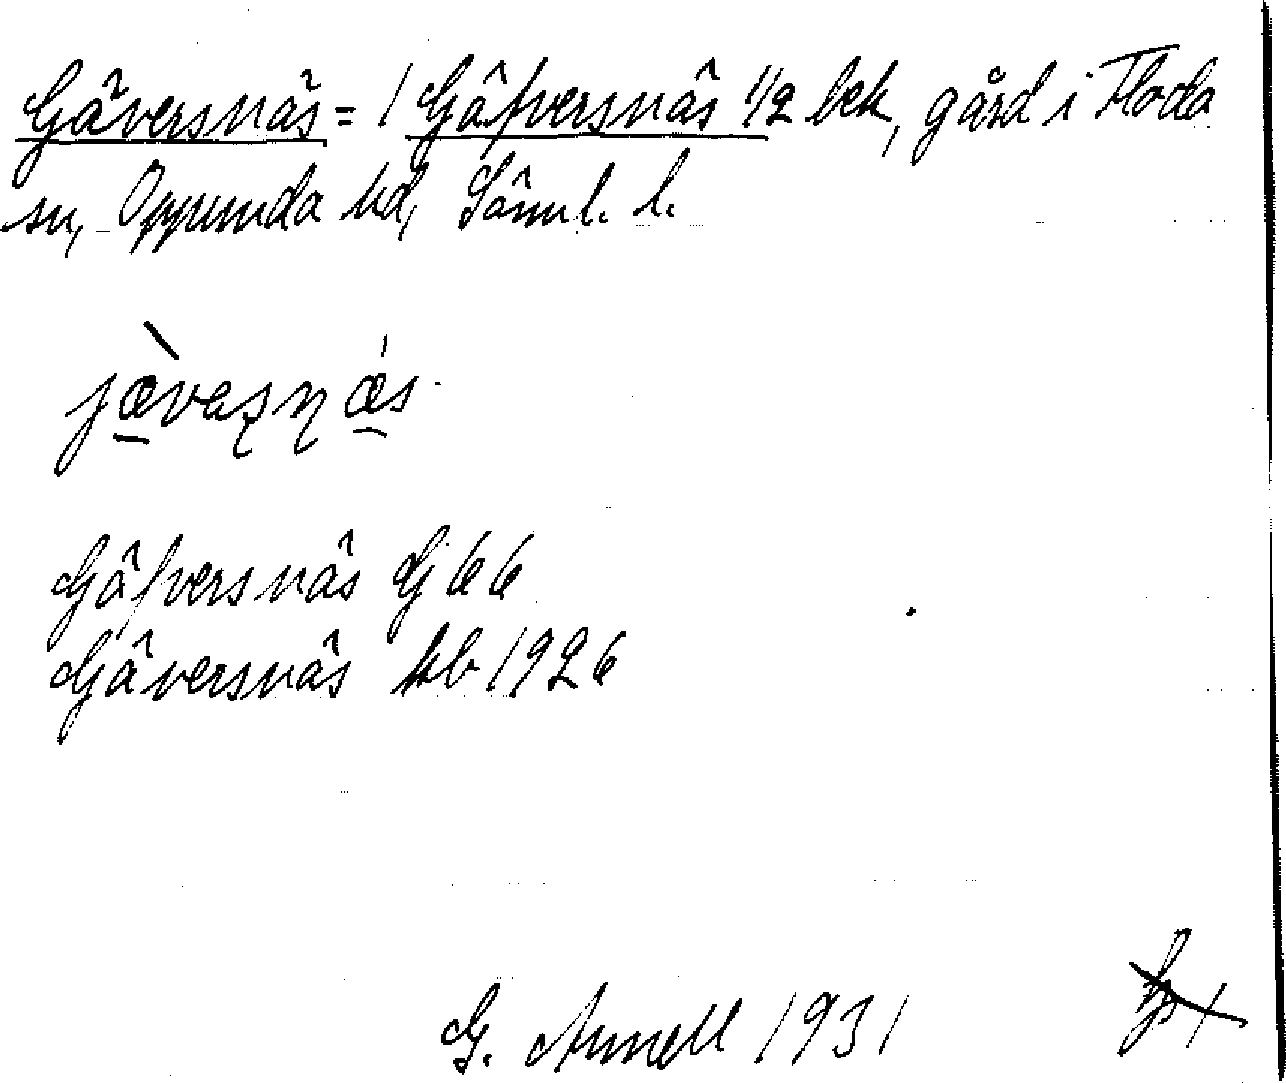 Gäversnäs = 1 Gäfversnäs 1/2 bek, gård i Floda
sn, Oppunda hd, Söml. l.
jævaʂɳæs
Gäfversnäs Gj 66
Gäversnäs kb 1926
G. Arnell 1931